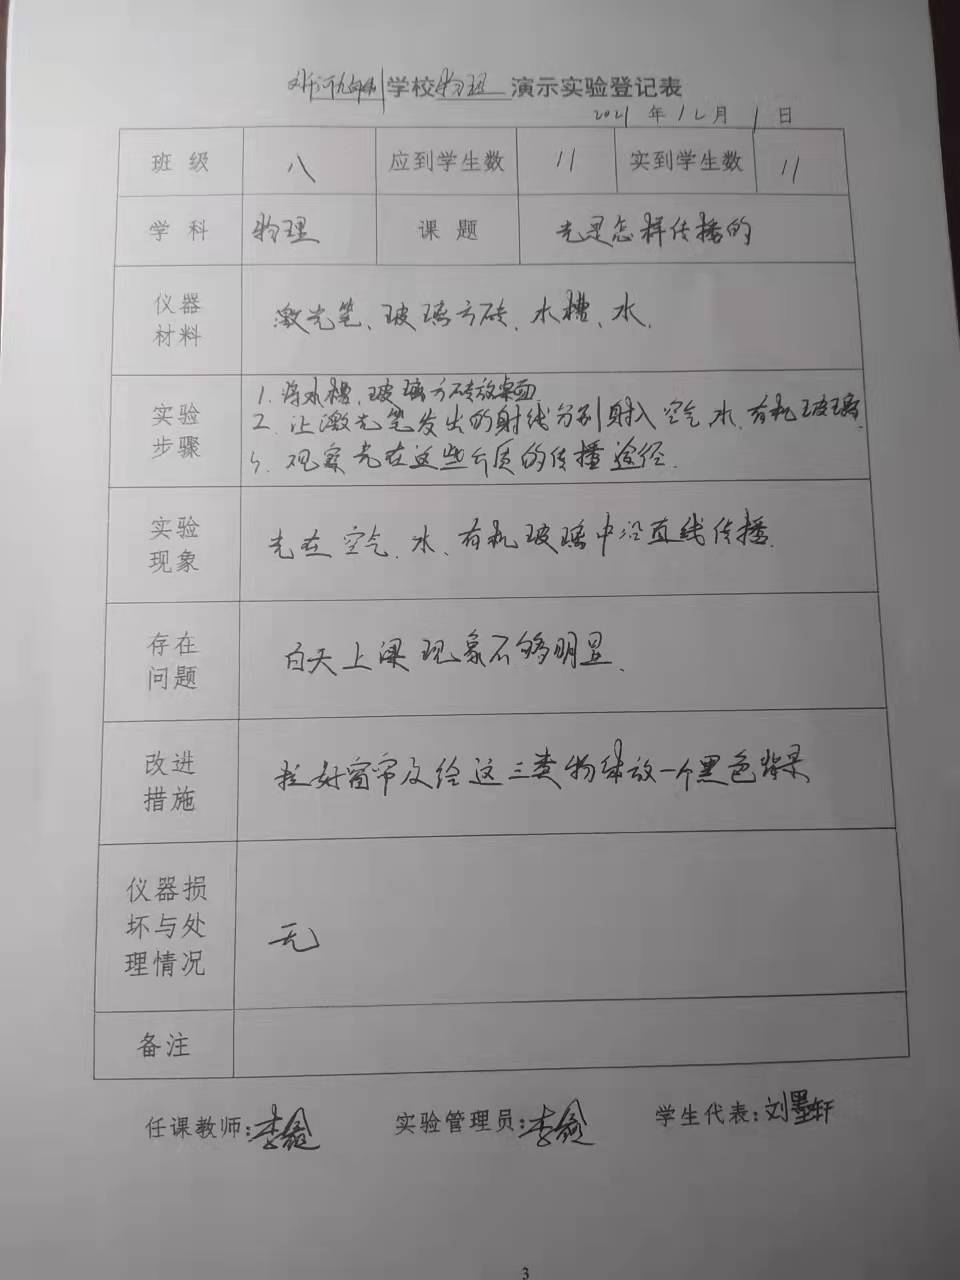 学校物理演示实验登记表
2021年12月1日
班级 八 应到学生数 11 实到学生数 11
学科 物理 课题 光是怎样传播的
仪器材料 激光笔、玻璃方砖、水槽、水.
实验步骤 1. 将水槽、玻璃方砖放桌面.
2. 让激光笔发出的射线分别射入空气、水、有机玻璃.
3. 观察光在这些介质的传播途径.
实验现象 光在空气、水、有机玻璃中沿直线传播.
存在问题 白天上课现象不够明显.
改进措施 拉好窗帘及给这三类物体放一个黑色背景
仪器损坏与处理情况 无
备注
任课教师:李 实验管理员:李 学生代表:刘墨轩
3